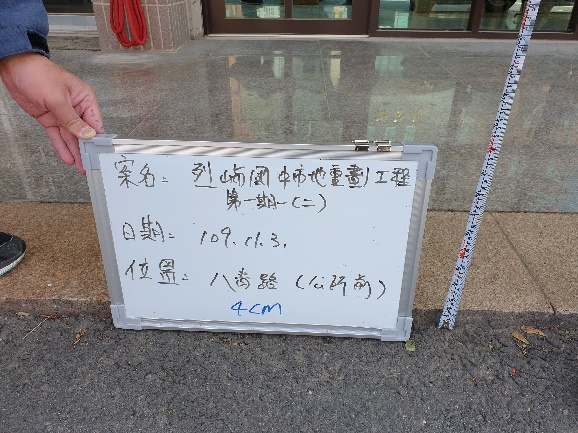 案名：烈嶼國中市地重劃工程
第一期-(二)
日期：109.11.3.
位置：八青路（公所前）
4cm